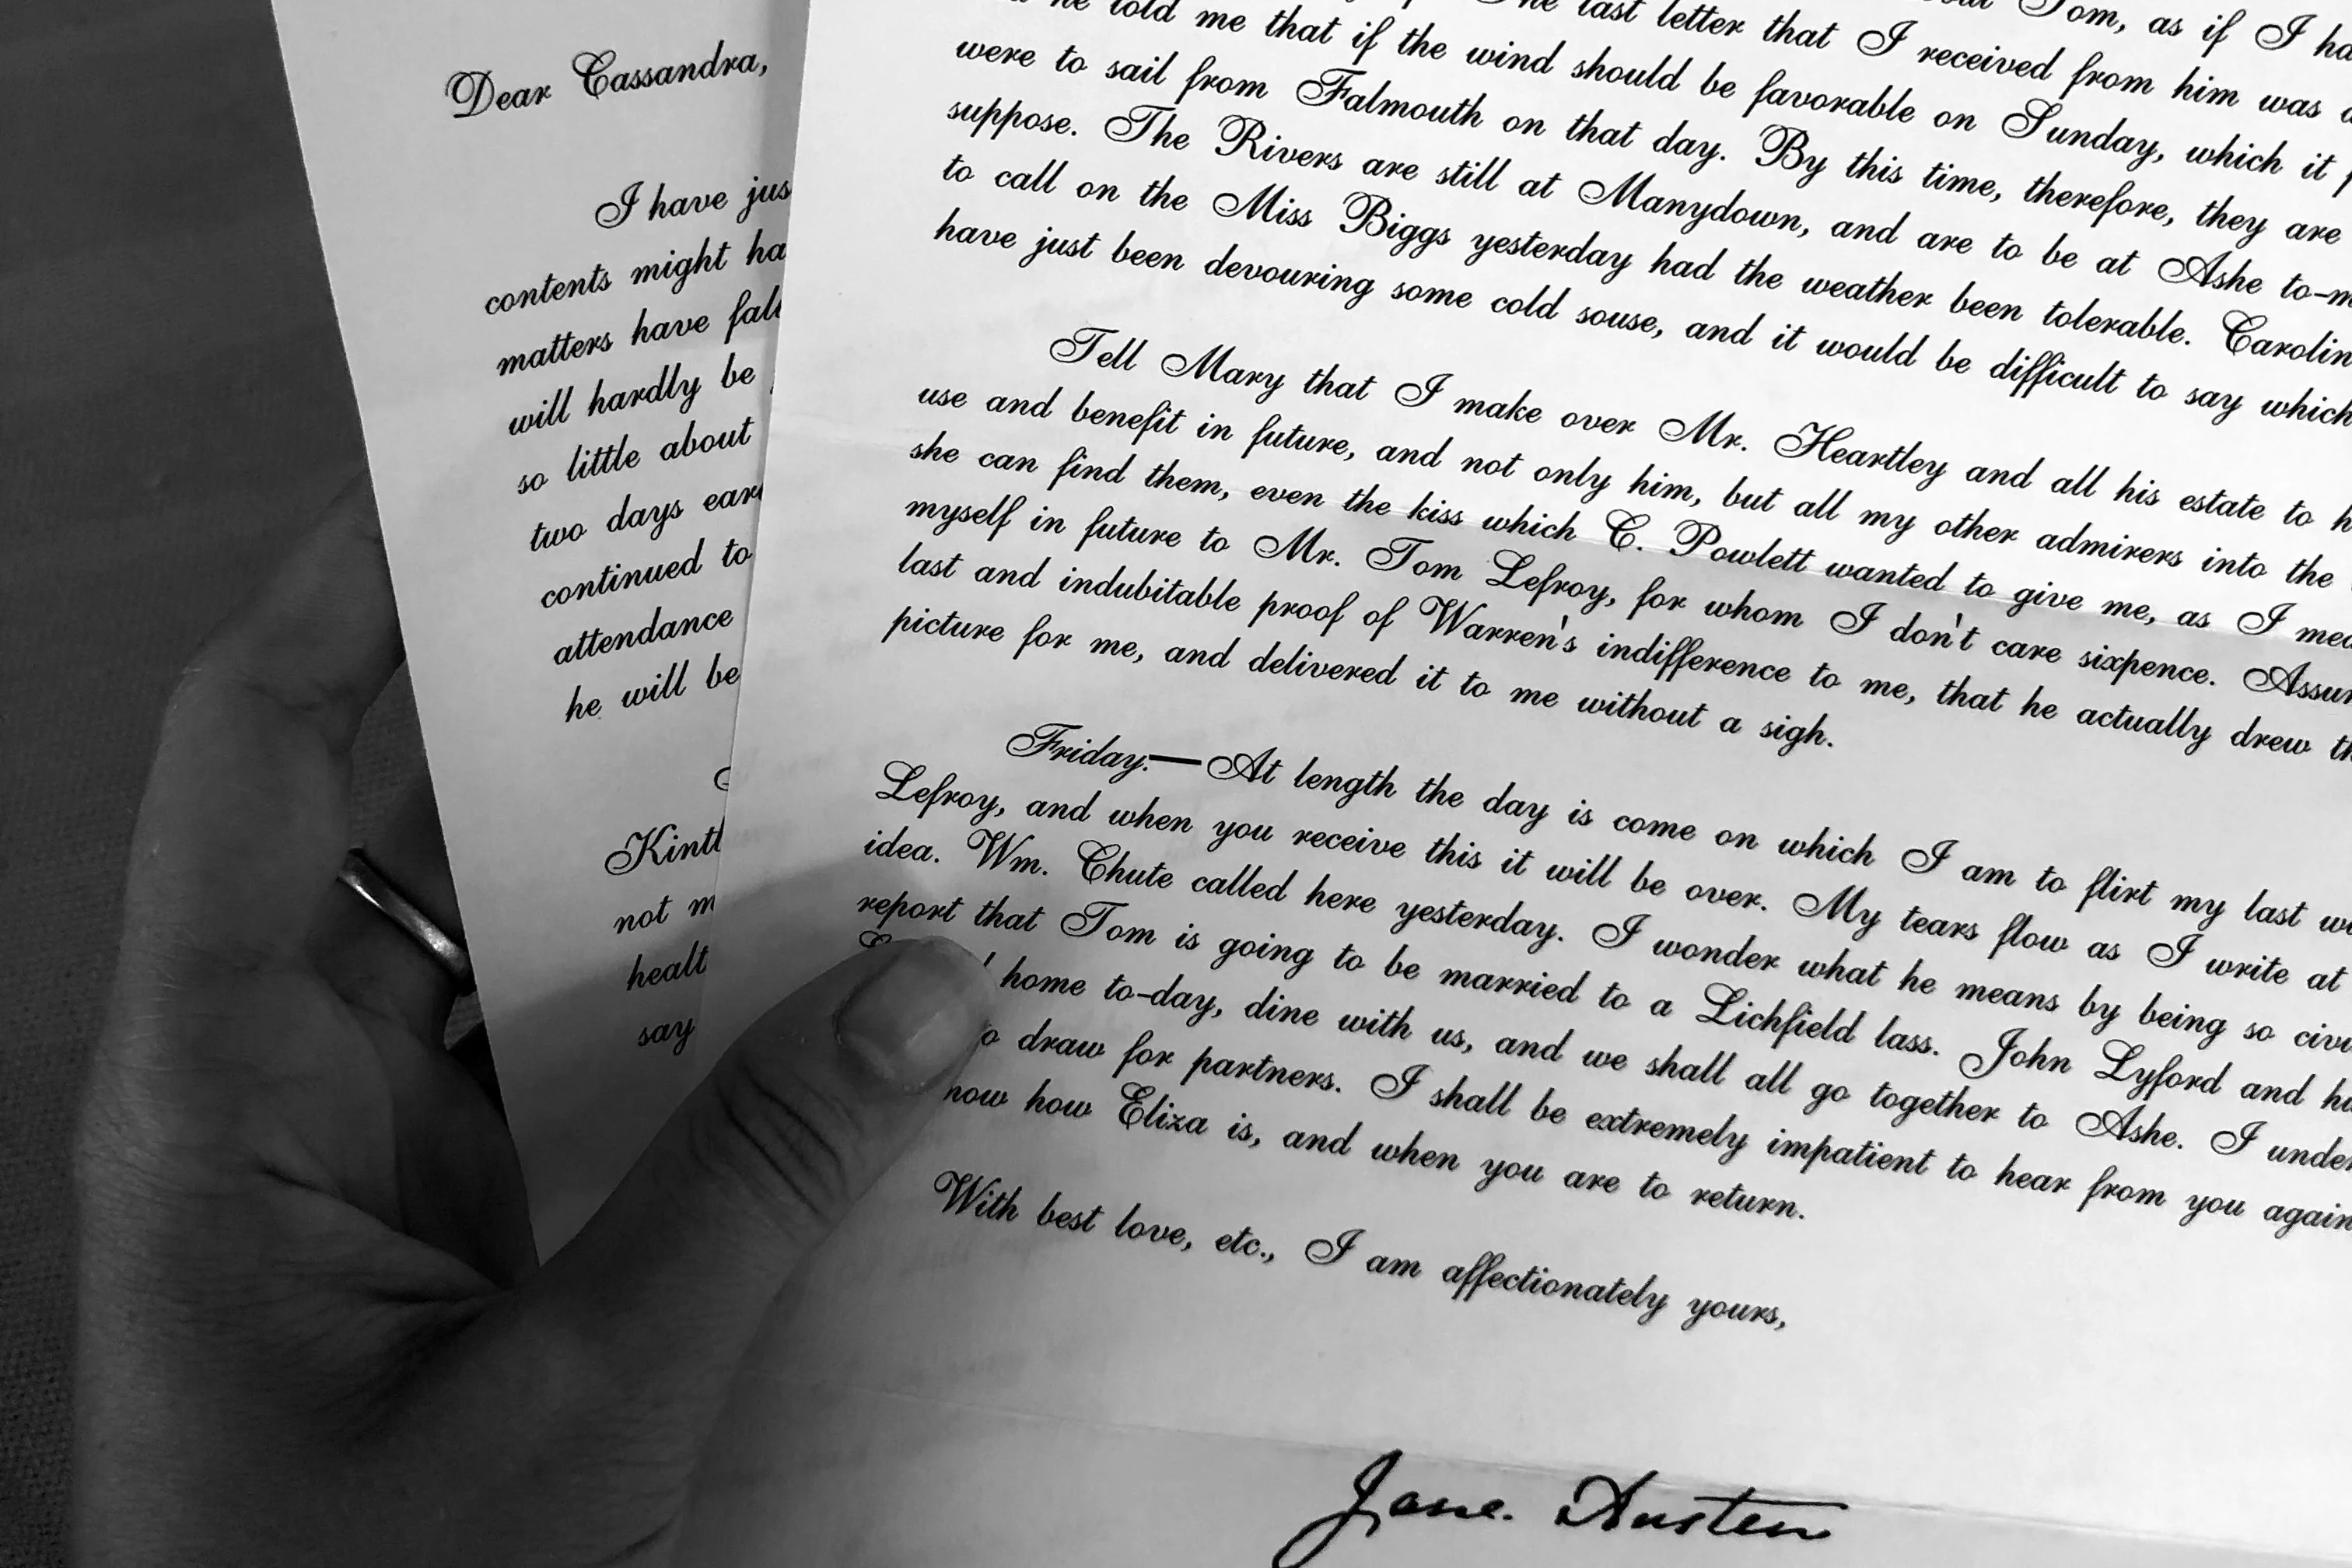 Dear Cassandra,
I have jus
contents might ha
matters have fall
will hardly be
so little about
two days earl
continued to
attendance
he will be
Kintl
not m
healt
say
Tom, as if I ha
he told me that if the wind should be favorable on Sunday, which it p
The last letter that I received from him was d
were to sail from Falmouth on that day. By this time, therefore, they are
suppose. The Rivers are still at Manydown, and are to be at Ashe to-m
to call on the Miss Biggs yesterday had the weather been tolerable. Carolin
have just been devouring some cold souse, and it would be difficult to say which
Tell Mary that I make over Mr. Heartley and all his estate to h
use and benefit in future, and not only him, but all my other admirers into the
she can find them, even the kiss which C. Powlett wanted to give me, as I mea
myself in future to Mr. Tom Lefroy, for whom I don't care sixpence. Assur
last and indubitable proof of Warren's indifference to me, that he actually drew th
picture for me, and delivered it to me without a sigh.
Friday.—At length the day is come on which I am to flirt my last w
Lefroy, and when you receive this it will be over. My tears flow as I write at
idea. Wm. Chute called here yesterday. I wonder what he means by being so civi
report that Tom is going to be married to a Lichfield lass. John Lyford and hi
home to-day, dine with us, and we shall all go together to Ashe. I under
o draw for partners. I shall be extremely impatient to hear from you again
now how Eliza is, and when you are to return.
With best love, etc., I am affectionately yours,
Jane. Austen